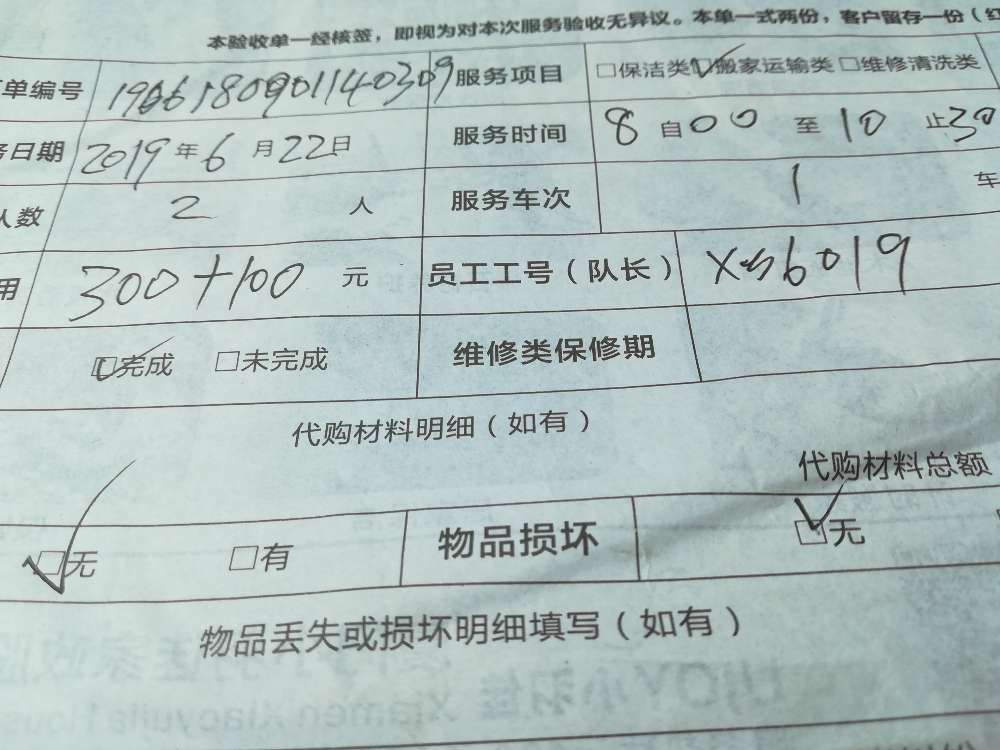 本验收单一经核签，即视为对本次服务验收无异议。本单一式两份，客户留存一份（红
单编号 19066180901140309 服务项目 □保洁类 ☑搬家运输类 □维修清洗类
日期 2019年6月22日 服务时间 8自00至10止30
人数 2人 服务车次 1 车
用 300+100 元 员工工号（队长） Xs6019
☑完成 □未完成 维修类保修期
代购材料明细（如有）
代购材料总额
☑无 □有 物品损坏 ☑无
物品丢失或损坏明细填写（如有）